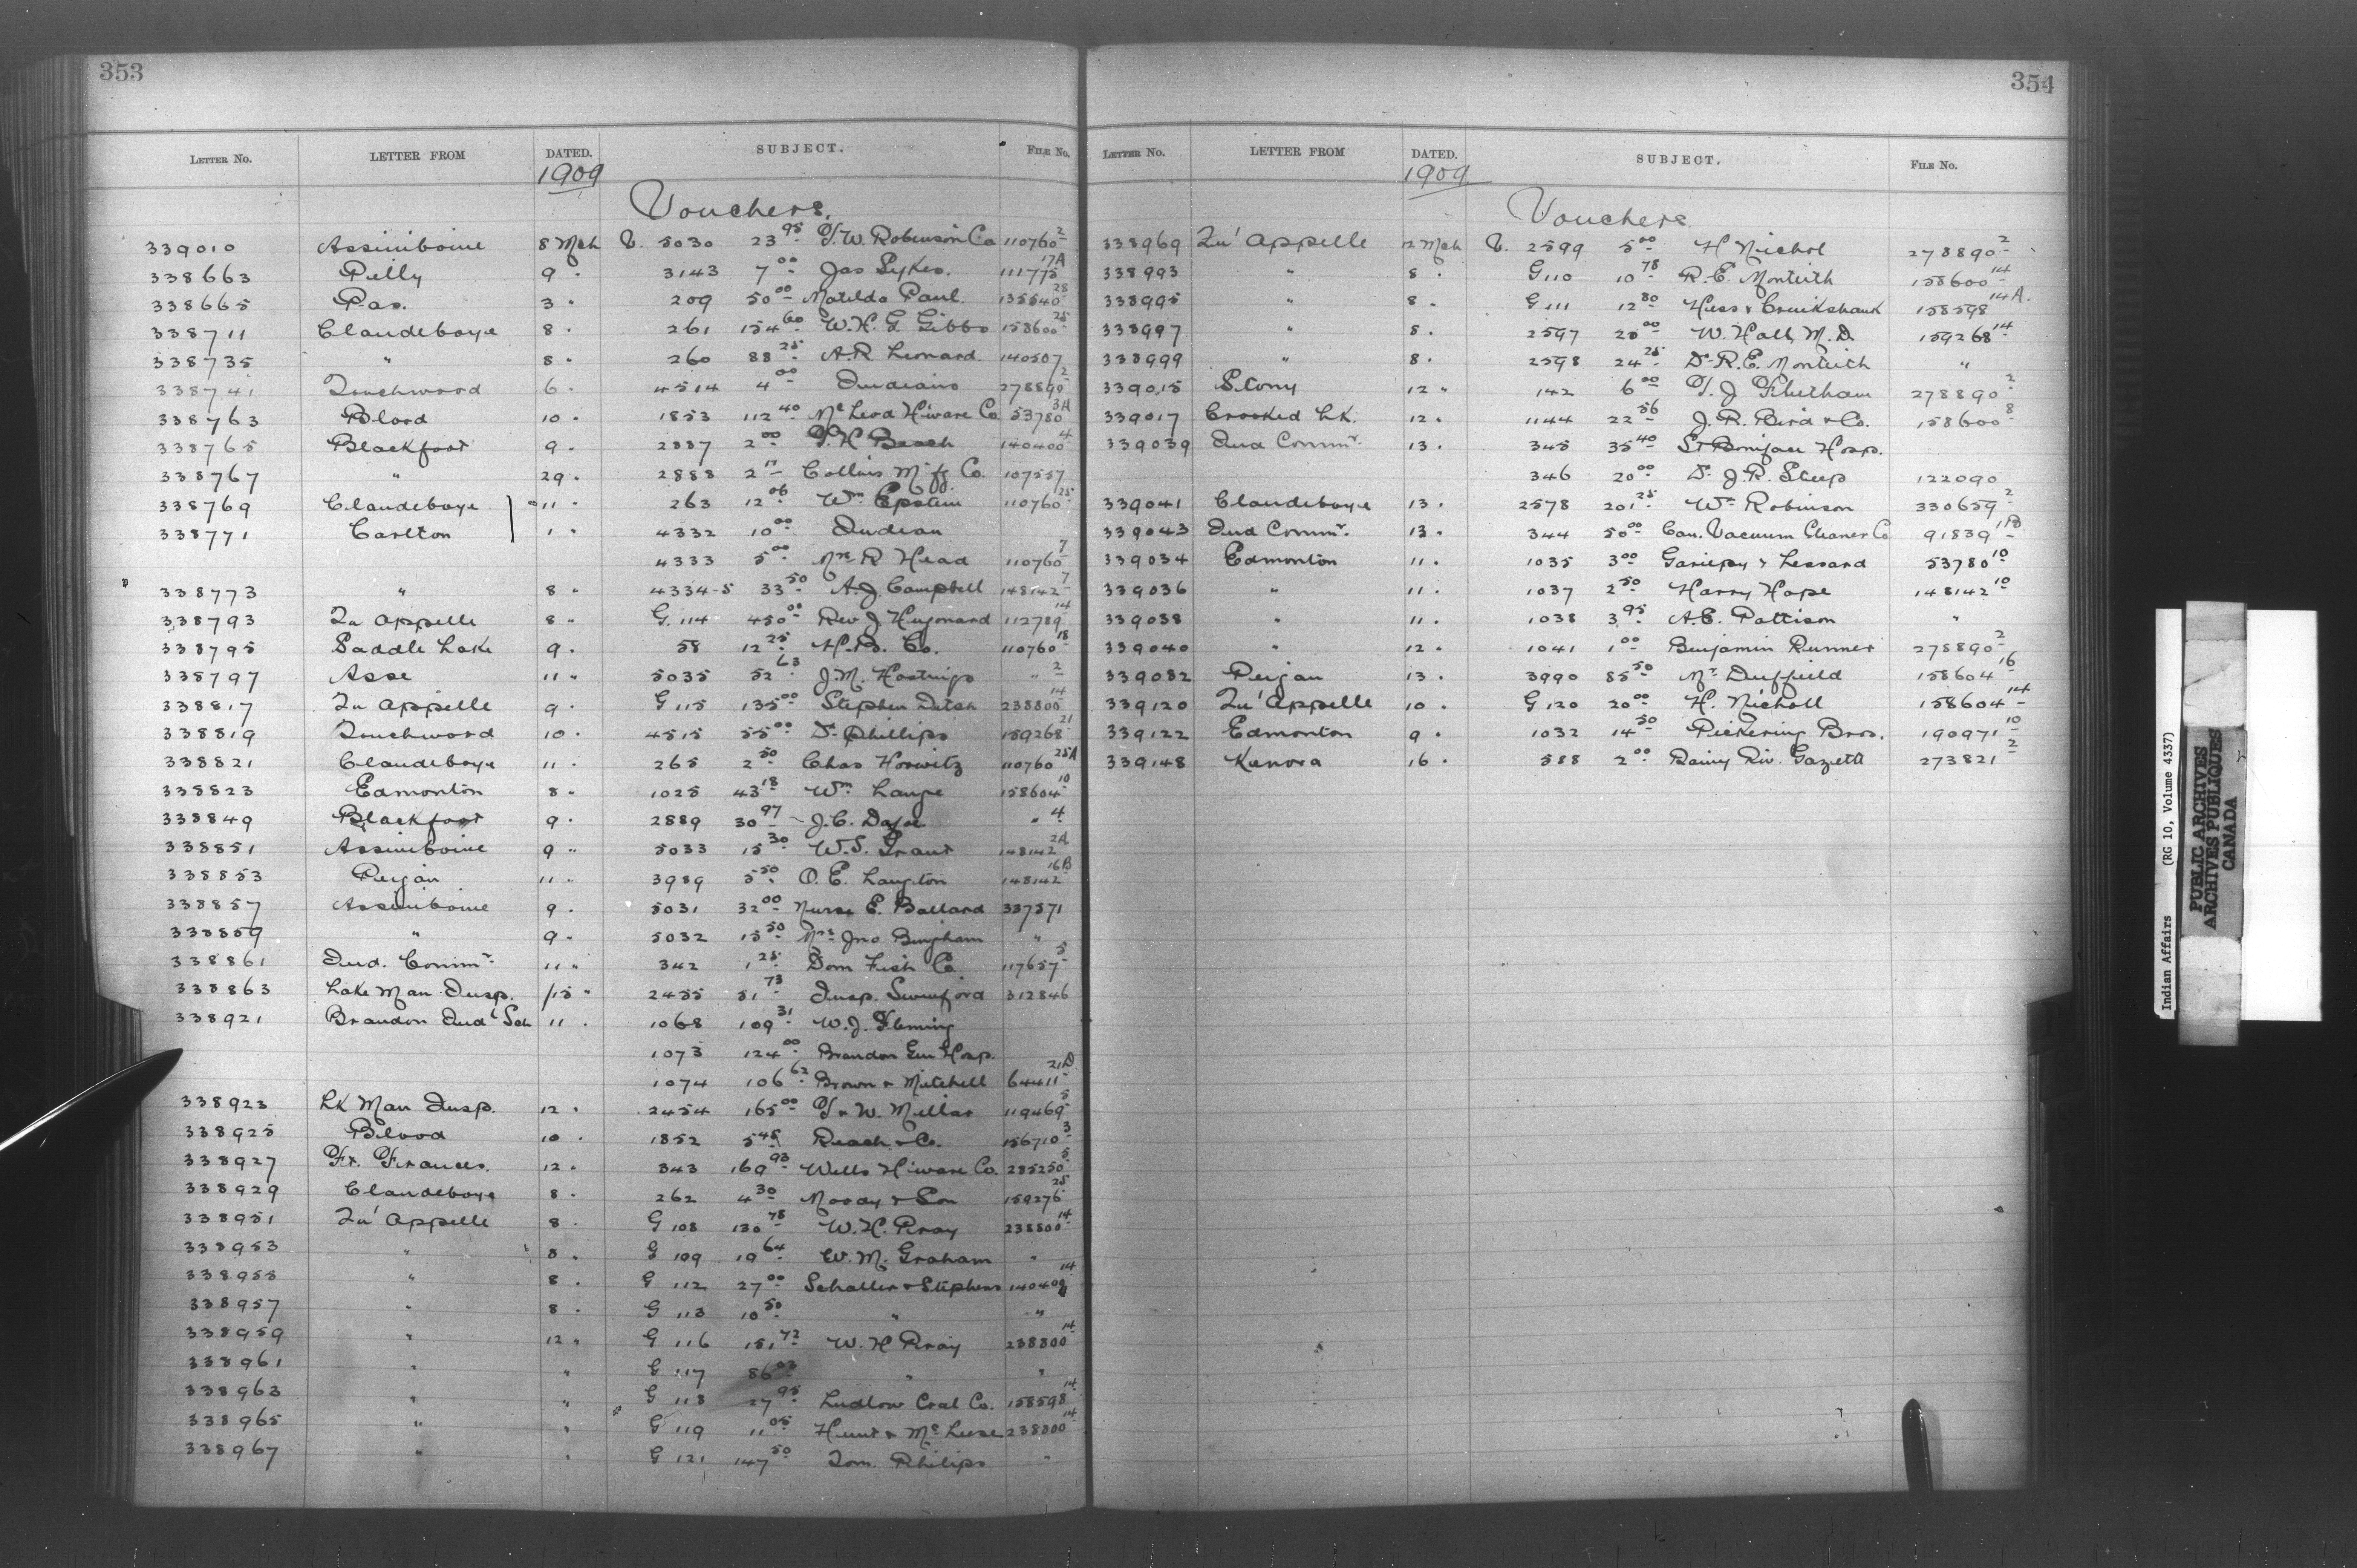 353
LETTER NO. LETTER FROM DATED. SUBJECT. FILE NO.
1909
Vouchers.
339010 Assiniboine 8 Mch V. 5030 23 95 T.W. Robinson Co 110760 2
338663 Pelly 9 " 3143 7 00 Jas Sykes. 111775 17A
338665 Pas. 3 " 209 50 00 Matilda Paul. 135540 28
338711 Clandeboye 8 " 261 154 60 W.H.G. Gibbs 158600 25
338735 " 8 " 260 88 25 A.R. Leonard. 140507
338741 Touchwood 6 " 4514 4 00 Indians 278890 2
338763 Blood 10 " 1853 112 40 McLeod H'ware Co 53780 3A
338765 Blackfoot 9 " 2887 2 00 T.H. Beach 140400 4
338767 " 29 " 2888 2 17 Collins M'f'g Co. 107557
338769 Clandeboye " 11 " 263 12 06 Wm Epstein 110760 25
338771 Carlton 1 " 4332 10 00 Indian
4333 5 00 Mrs R Head 110760 7
338773 " 8 " 4334-5 33 50 A.J. Campbell 148142 7
338793 Qu Appelle 8 " G. 114 450 00 Rev J Hugonard 112789 14
338795 Saddle Lake 9 " 58 12 25 H.B. Co. 110760 18
338797 Asse 11 " 5035 52 63 J.M. Hastings " 2
338817 Qu Appelle 9 " G 115 135 00 Stephen Dutch 238800 14
338819 Touchwood 10 " 4515 55 00 Dr Phillips 159268 21
338821 Clandeboye 11 " 265 2 50 Chas Horwitz 110760 25A
338823 Edmonton 8 " 1025 43 18 Wm Lange 158604 10
338849 Blackfoot 9 " 2889 30 97 J.C. Dafoe " 4
338851 Assiniboine 9 " 5033 15 30 W.S. Grant 148142 2A
338853 Peigan 11 " 3989 5 50 O.E. Langton 148142 16B
338857 Assiniboine 9 " 5031 32 00 Nurse E. Ballard 337571
338859 " 9 " 5032 15 50 Mrs Jno Bingham "
338861 Ind. Commr. 11 " 342 1 25 Dom Fish Co 117657 5
338863 Lake Man Insp. 15 " 2455 51 73 Insp. Swinford 312846
338921 Brandon Indl Sch 11 " 1068 109 31 W.J. Fleming
1073 124 00 Brandon Gen Hosp.
1074 106 62 Brown & Mitchell 64411 21D
338923 Lk Man Insp. 12 " 2454 165 00 T & W. Millar 119469 5
338925 Blood 10 " 1852 5 45 Reach & Co. 156710 3
338927 Ft. Frances. 12 " 343 169 93 Wells H'ware Co. 285250 5
338929 Clandeboye 8 " 262 4 30 Moody & Son 159276 25
338951 Qu' Appelle 8 " G 108 130 78 W.H. Pray 238800 14
338953 " 8 " G 109 19 64 W.M. Graham "
338955 " 8 " G 112 27 00 Schaller & Stephens 140400 14
338957 " 8 " G 113 10 50 " "
338959 " 12 " G 116 151 72 W.H Pray 238800 14
338961 " " G 117 86 03 " "
338963 " " G 118 27 95 Ludlow Coal Co. 158598 14
338965 " " G 119 11 05 Hunt & 238800 14
338967 " " G 121 147 50 Tom. Philips "
354
LETTER NO. LETTER FROM DATED. SUBJECT. FILE NO.
1909
Vouchers
338969 Qu' Appelle 12 Mch V. 2599 5 00 H Nichol 278890 2
338993 " 8 " G 110 10 78 R.E. Monteith 158600 14
338995 " 8 " G 111 12 80 Hess & Cruikshank 158598 14A.
338997 " 8 " 2597 20 00 W. Hall M.D. 159268 14
338999 " 8 " 2598 24 25 Dr R.E. Monteith "
339015 Stony 12 " 142 6 00 T.J. Fletham 278890 2
339017 Crooked Lk. 12 " 1144 22 56 J.R. Bird & Co. 158600 8
339039 Ind Commr. 13 " 345 35 40 St Boniface Hosp.
346 20 00 Dr J.R. Steep 122090
339041 Clandeboye 13 " 2578 201 25 Wm Robinson 330659 2
339043 Ind Commr. 13 " 344 50 00 Can. Vacuum Cleaner Co 91839
339034 Edmonton 11 " 1035 3 00 Gariepy & Lessard 53780 10
339036 " 11 " 1037 2 50 Harry Hope 148142 10
339038 " 11 " 1038 3 95 A.E. Pattison "
339040 " 12 " 1041 1 00 Benjamin Runner 278890 2
339082 Peigan 13 " 3990 85 50 Mr Duffield 158604 16
339120 Qu' Appelle 10 " G 120 20 00 H. Nicholl 158604 14
339122 Edmonton 9 " 1032 14 50 Pickering Bros. 190971 10
339148 Kenora 16 " 588 2 00 Rainy Riv. Gazette 273821 2
Indian Affairs (RG 10, Volume 4337)
PUBLIC ARCHIVES
ARCHIVES PUBLIQUES
CANADA